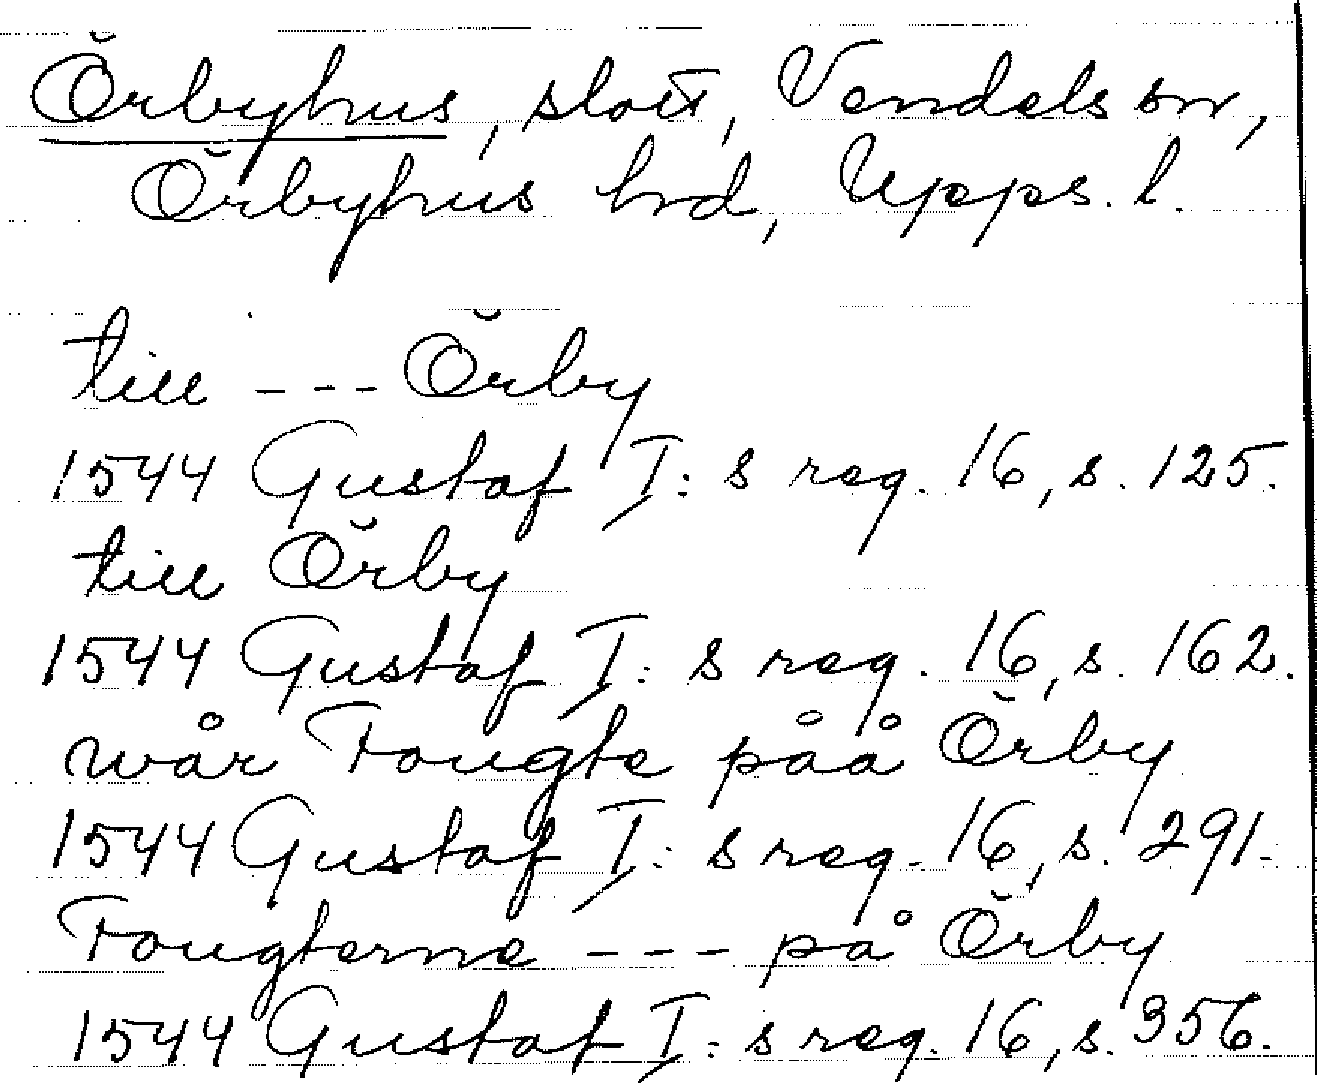 Örbyhus, slott, Vendels sn,
Örbyhus hrd, Upps. l.
till --- Örby
1544 Gustaf I:s reg. 16, s. 125.
till Örby
1544 Gustaf I:s reg. 16, s. 162.
wår Fougte påå Örby
1544 Gustaf I:s reg. 16, s. 291.
Fougterne --- på Örby
1544 Gustaf I:s reg. 16, s. 356.